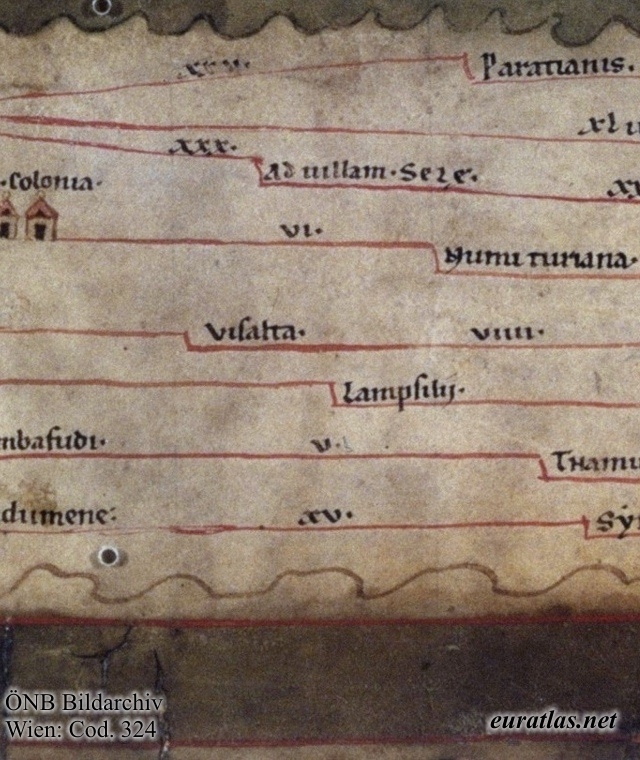 Paratianis.
xxx.
Ad uillam. Sele.
.Colonia.
vi.
Numituriana.
Visalta.
viiii.
Lampsilij.
mbafudi.
v.
Thamu
dumene:
xv.
Sy
ÖNB Bildarchiv
Wien: Cod. 324
euratlas.net